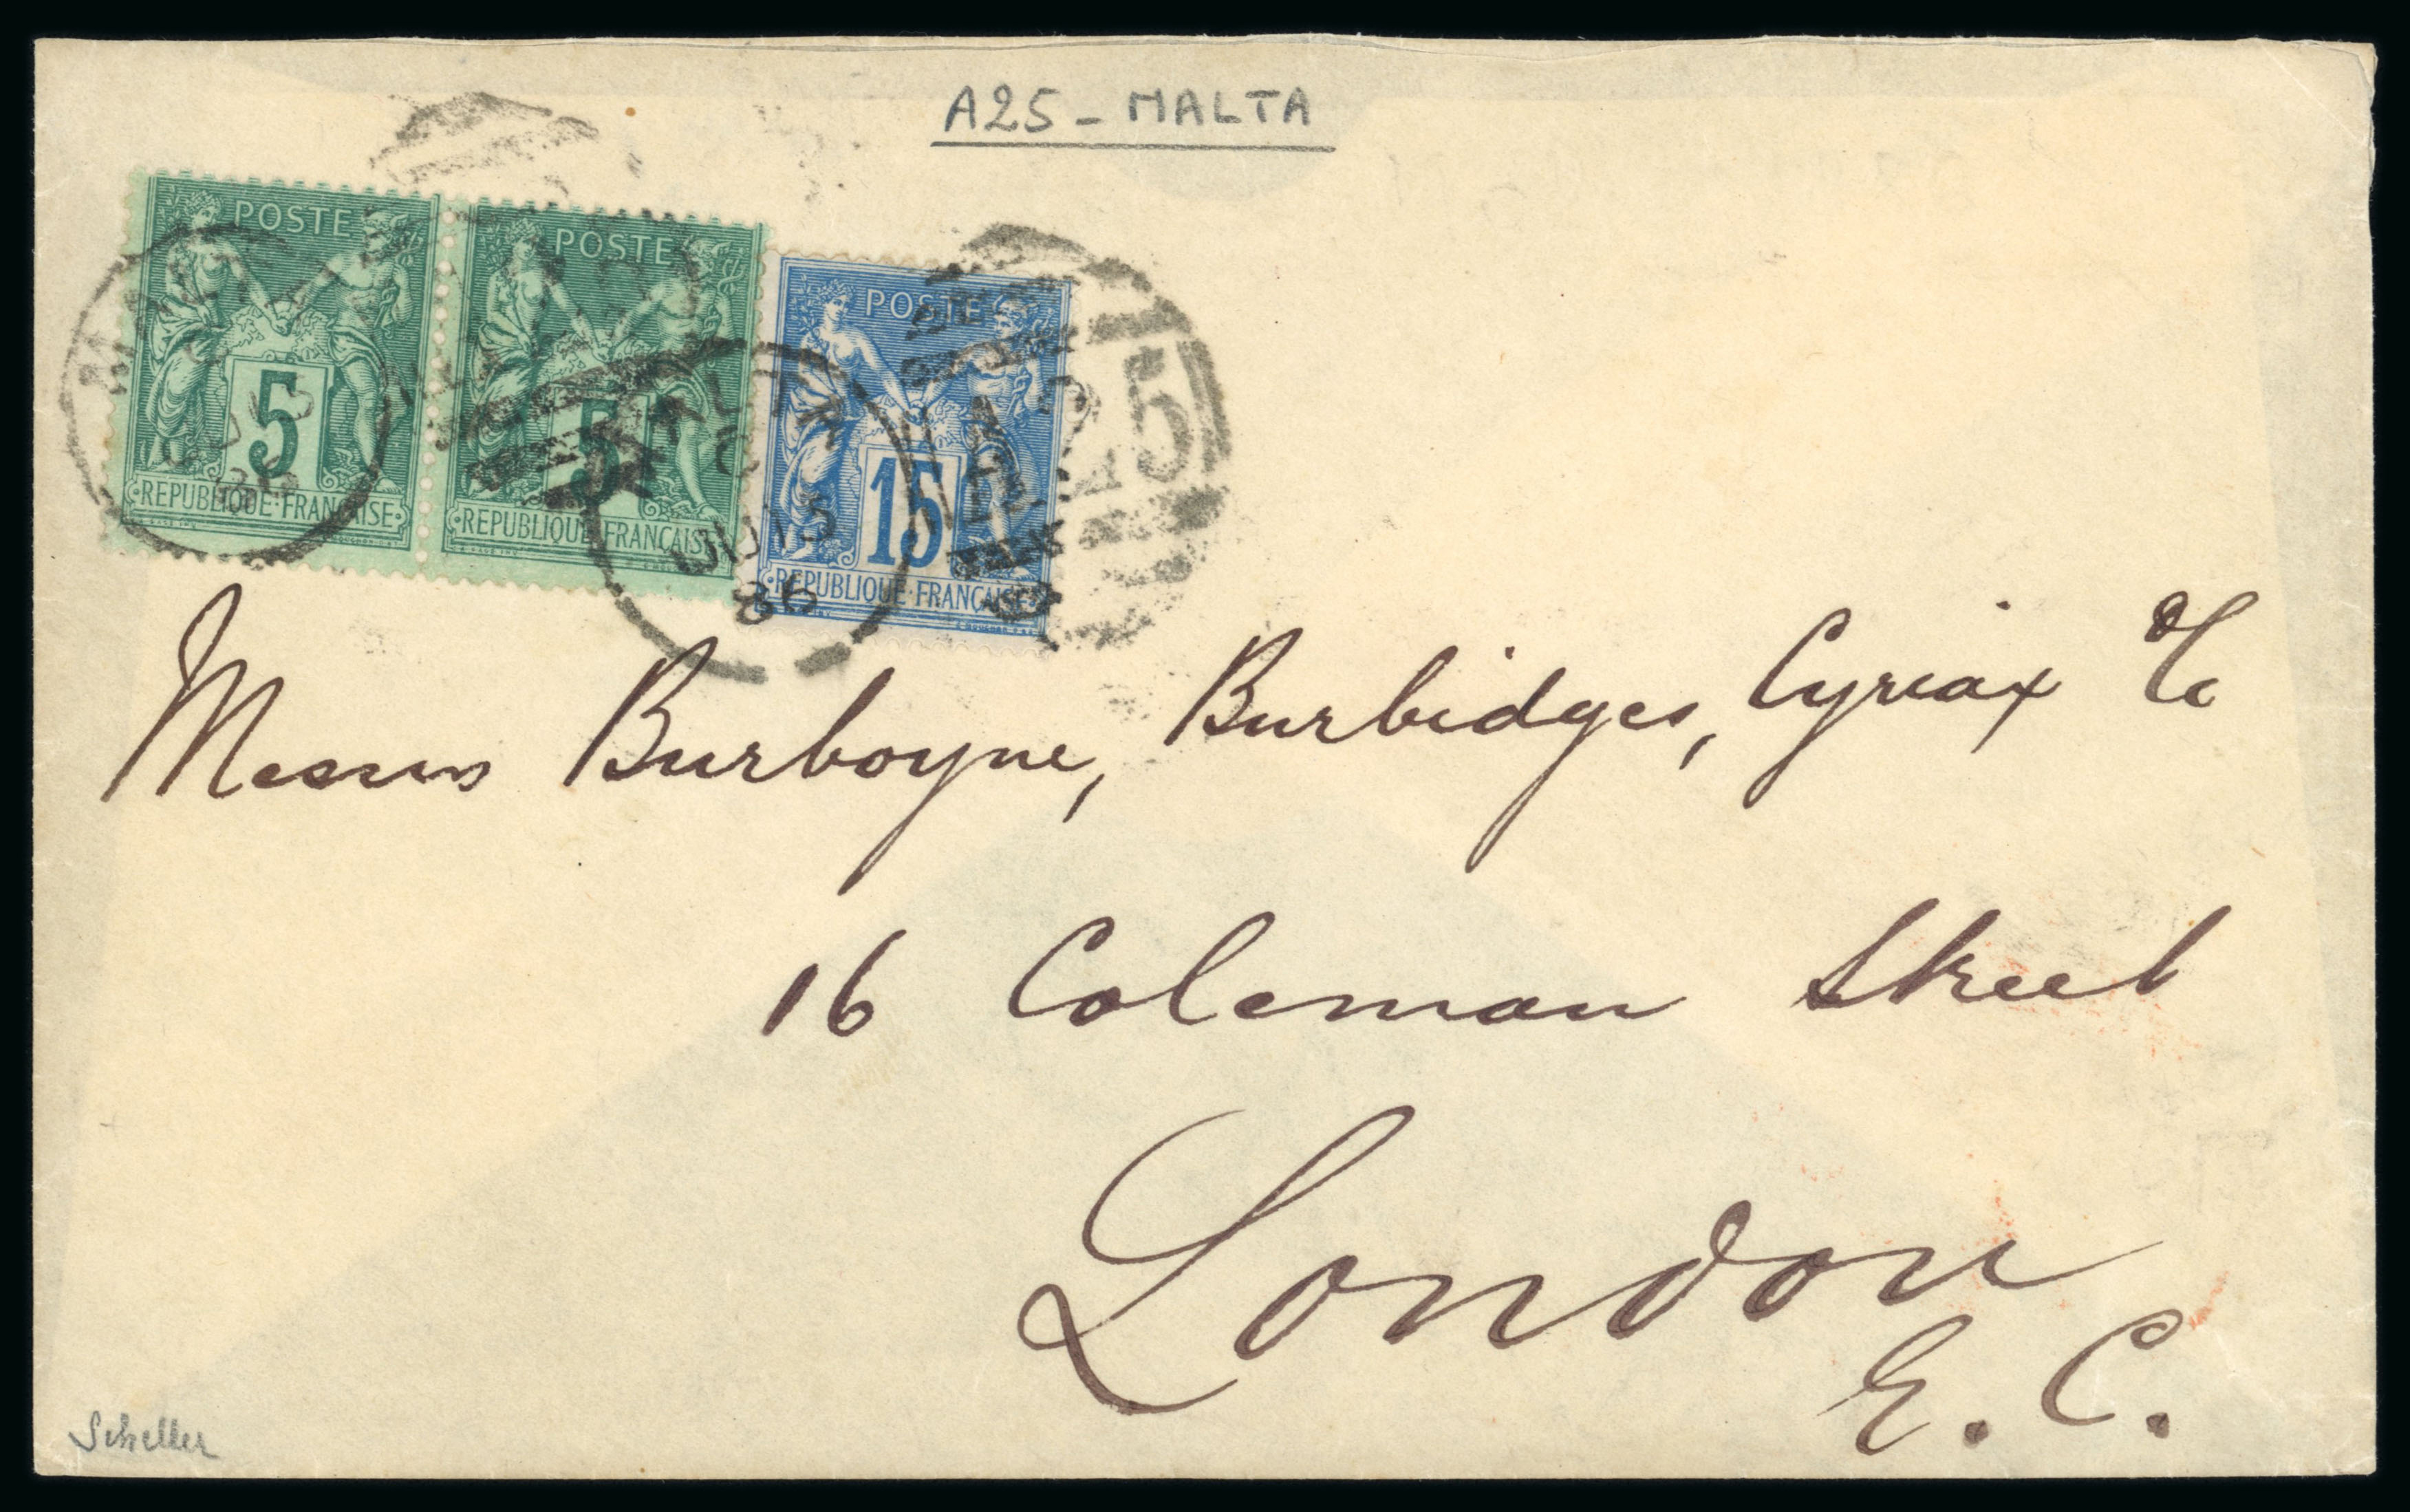 A25 - MALTA
POSTE
5
REPUBLIQUE FRANÇAISE
POSTE
5
REPUBLIQUE FRANÇAISE
POSTE
15
REPUBLIQUE FRANÇAISE
MALTA
C
JU 15
86
MALTA
C
JU 15
86
A25
Messrs Burboyne, Burbidges, Cyriax & Co
16 Coleman Street
London
E.C.
Scheller